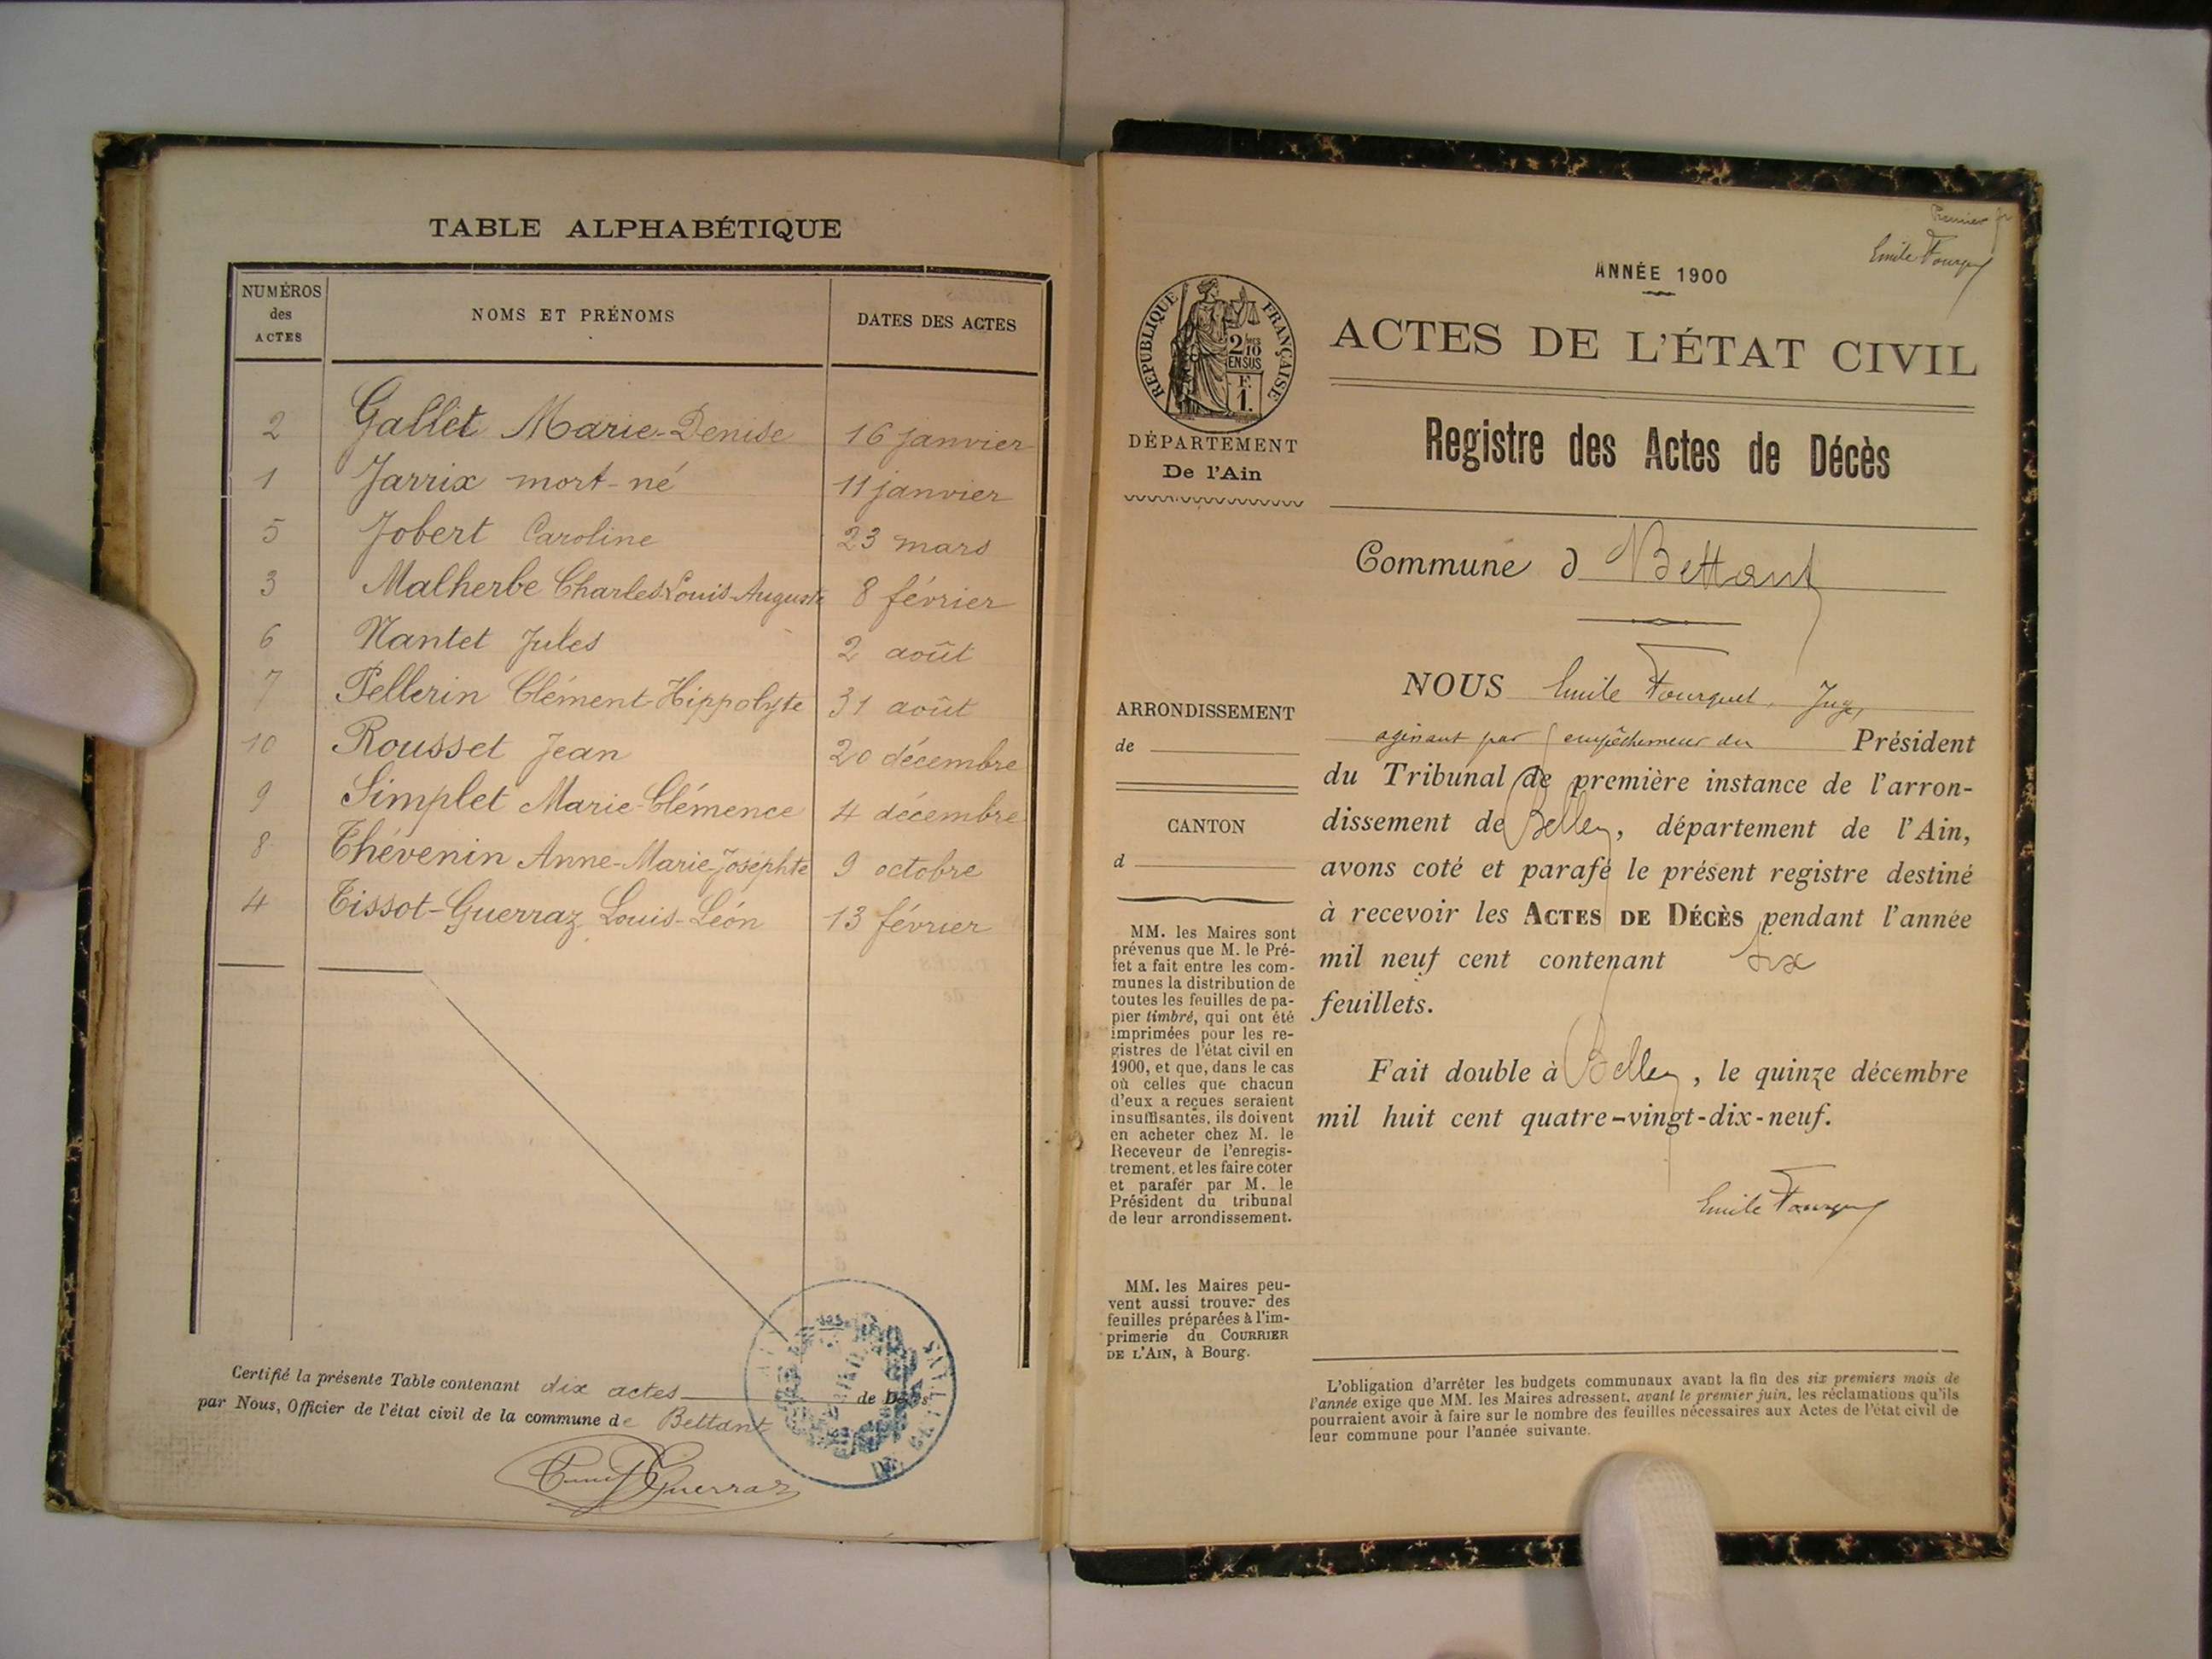 TABLE ALPHABÉTIQUE
NUMÉROS des ACTES
NOMS ET PRÉNOMS
DATES DES ACTES
2 Gallet Marie-Denise 16 janvier
1 Jarrix mort-né 11 janvier
5 Jobert Caroline 23 mars
3 Malherbe Charles Louis-Auguste 8 février
6 Nantet Jules 2 août
7 Pellerin Clément-Hippolyte 31 août
10 Rousset Jean 20 décembre
9 Simplet Marie-Clémence 4 décembre
8 Thévenin Anne-Marie-Josephte 9 octobre
4 Tissot-Guerraz Louis-Léon 13 février
Certifié la présente Table contenant dix actes de Décès
par Nous, Officier de l'état civil de la commune de Bettant
Guerraz
Premier
Emile Fourquet
ANNÉE 1900
RÉPUBLIQUE FRANÇAISE
2/10
EN SUS
F.
1.
ACTES DE L'ÉTAT CIVIL
DÉPARTEMENT
De l'Ain
Registre des Actes de Décès
Commune d Bettant
ARRONDISSEMENT
de
CANTON
d
MM. les Maires sont
prévenus que M. le Pré-
fet a fait entre les com-
munes la distribution de
toutes les feuilles de pa-
pier timbré, qui ont été
imprimées pour les re-
gistres de l'état civil en
1900, et que, dans le cas
où celles que chacun
d'eux a reçues seraient
insuffisantes, ils doivent
en acheter chez M. le
Receveur de l'enregis-
trement, et les faire coter
et parafer par M. le
Président du tribunal
de leur arrondissement.
MM. les Maires peu-
vent aussi trouver des
feuilles préparées à l'im-
primerie du COURRIER
DE L'AIN, à Bourg.
NOUS Emile Fourquet, Juge,
agissant par empêchement du Président
du Tribunal de première instance de l'arron-
dissement de Belley, département de l'Ain,
avons coté et parafé le présent registre destiné
à recevoir les ACTES DE DÉCÈS pendant l'année
mil neuf cent contenant six
feuillets.
Fait double à Belley, le quinze décembre
mil huit cent quatre-vingt-dix-neuf.
Emile Fourquet
L'obligation d'arrêter les budgets communaux avant la fin des six premiers mois de
l'année exige que MM. les Maires adressent, avant le premier juin, les réclamations qu'ils
pourraient avoir à faire sur le nombre des feuilles nécessaires aux Actes de l'état civil de
leur commune pour l'année suivante.